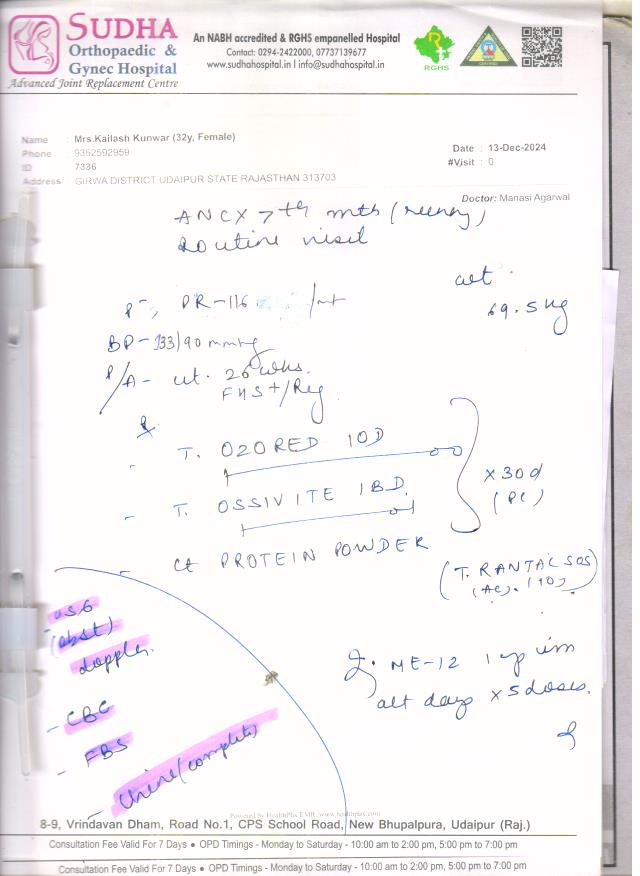 SUDHA
Orthopaedic &
Gynec Hospital
Advanced Joint Replacement Centre
An NABH accredited & RGHS empanelled Hospital
Contact: 0294-2422000, 07737139677
www.sudhahospital.in | info@sudhahospital.in
RGHS
Name : Mrs.Kailash Kunwar (32y, Female)
Phone : 9352592959
ID : 7336
Address : GIRWA DISTRICT UDAIPUR STATE RAJASTHAN 313703
Date : 13-Dec-2024
#Visit : 0
Doctor: Manasi Agarwal
ANCX 7th mth
Routine visit
wt.
69.5 kg
PR-116 /mt
BP-133/90 mmHg
P/A- ut. 26 wks.
FHS+/Reg
T. OZORED 1OD
T. OSSIVITE 1BD
X 30d
(PC)
Ct PROTEIN POWDER
(T. RANTAC SOS
(AC). (10)
USG
(obst)
doppler.
- CBC
- FBS
- Urine (complete)
ME-12 1 im
alt days x 5 doses.
Powered by HealthPlus EMR. www.healthplix.com
8-9, Vrindavan Dham, Road No.1, CPS School Road, New Bhupalpura, Udaipur (Raj.)
Consultation Fee Valid For 7 Days ● OPD Timings - Monday to Saturday - 10:00 am to 2:00 pm, 5:00 pm to 7:00 pm
Consultation Fee Valid For 7 Days ● OPD Timings - Monday to Saturday - 10:00 am to 2:00 pm, 5:00 pm to 7:00 pm